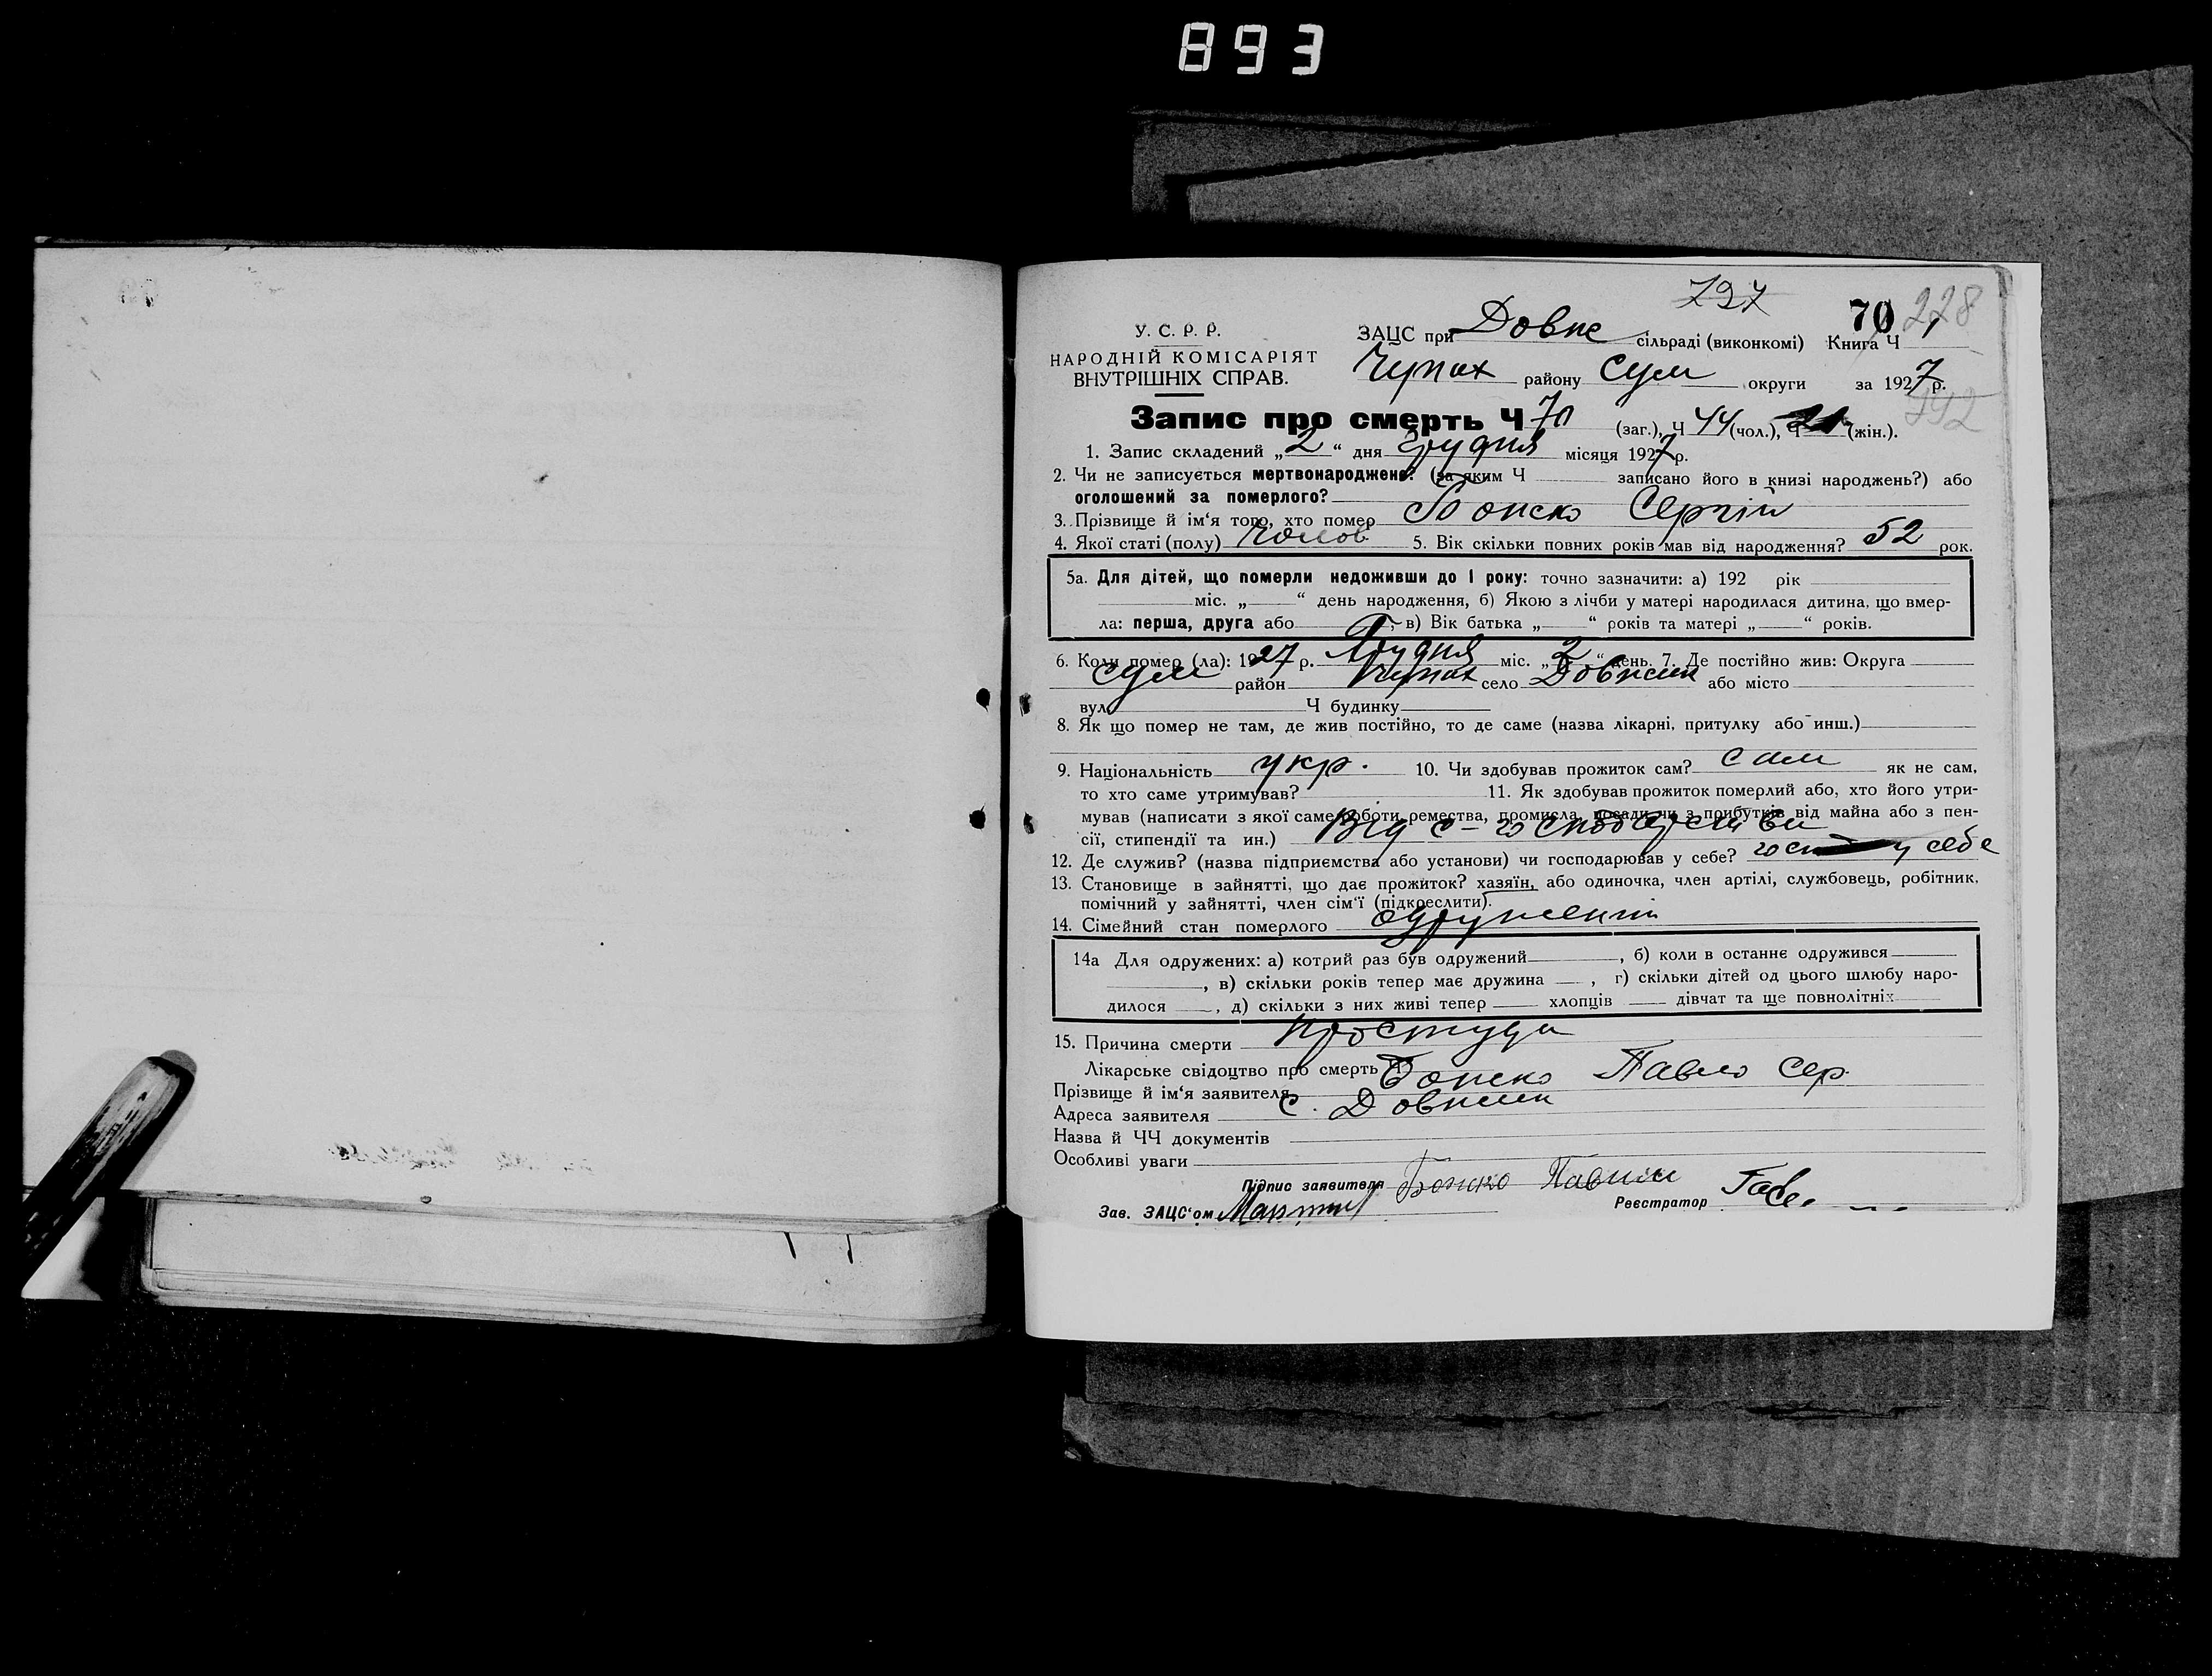 893
797
70 228
У. С. Р. Р.
НАРОДНІЙ КОМІСАРІЯТ
ВНУТРІШНІХ СПРАВ.
ЗАЦС при Довж сільраді (виконкомі) Книга Ч 1
Чупах району Сум округи за 1927 р.
Запис про смерть Ч 70 (заг.), Ч 44 (чол.), Ч (жін.).
1. Запис складений „2“ дня грудня місяця 1927 р.
2. Чи не записується мертвонароджене? (за яким Ч записано його в книзі народжень?) або
оголошений за померлого?
3. Прізвище й ім‘я того, хто помер Божко Сергій
4. Якої статі (полу) Чолов 5. Вік скільки повних років мав від народження? 52 рок.
5а. Для дітей, що померли недоживши до І року: точно зазначити: а) 192 рік
міс. „ “ день народження, б) Якою з лічби у матері народилася дитина, що вмер-
ла: перша, друга або , в) Вік батька „ “ років та матері „ “ років.
6. Коли помер (ла): 1927 р. Грудня міс. „2“ день. 7. Де постійно жив: Округа
Сум район Чупах село Довжик або місто
вул. Ч будинку
8. Як що помер не там, де жив постійно, то де саме (назва лікарні, притулку або инш.)
9. Національність укр. 10. Чи здобував прожиток сам? сам як не сам,
то хто саме утримував? 11. Як здобував прожиток померлий або, хто його утри-
мував (написати з якої саме роботи ремества, промисла, посади чи з прибутків від майна або з пен-
сії, стипендії та ин.) Від с-господарства
12. Де служив? (назва підприємства або установи) чи господарював у себе? госп у себе
13. Становище в зайнятті, що дає прожиток? хазяїн, або одиночка, член артілі, службовець, робітник,
помічний у зайнятті, член сім‘ї (підкреслити).
14. Сімейний стан померлого одружений
14а Для одружених: а) котрий раз був одружений , б) коли в останнє одружився
, в) скільки років тепер має дружина , г) скільки дітей од цього шлюбу наро-
дилося , д) скільки з них живі тепер хлопців дівчат та ще повнолітніх
15. Причина смерти простуда
Лікарське свідоцтво про смерть Ч
Прізвище й ім‘я заявителя Божко Павло Сер.
Адреса заявителя с. Довжик
Назва й ЧЧ документів
Особливі уваги
Підпис заявителя Божко Павло
Зав. ЗАЦС‘ом Реєстратор